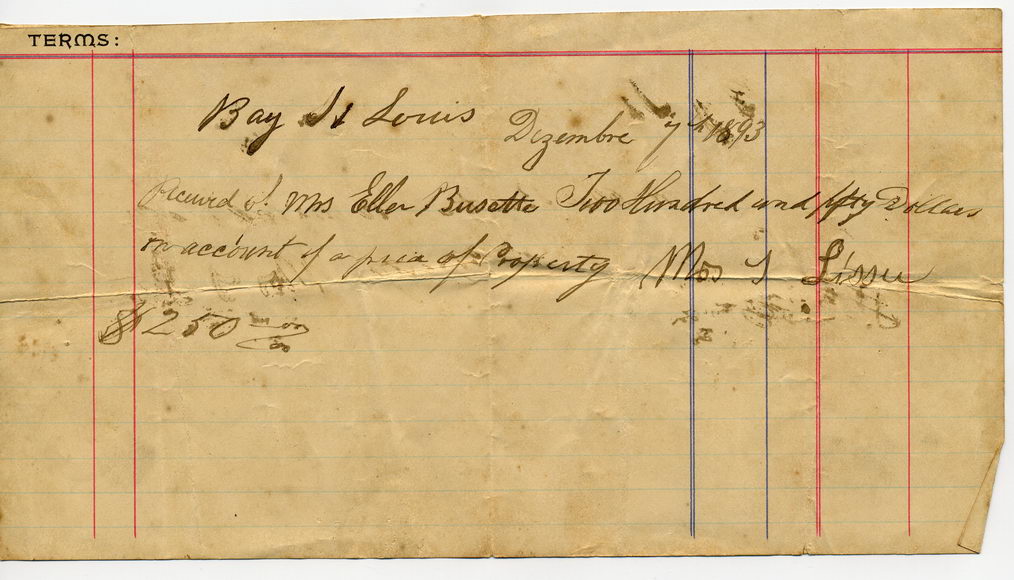 TERMS:
Bay St Louis
Dezembre 7th 1893
Received of Mrs Eller Busette Two Hundred und fifty Dollars
on account of a price of Property Mrs I Lissu
$250 00/00